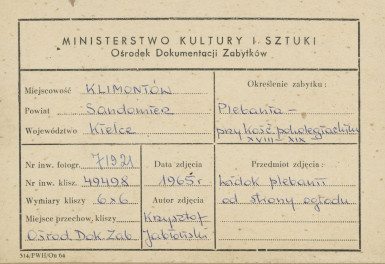 MINISTERSTWO KULTURY I SZTUKI
Ośrodek Dokumentacji Zabytków
Miejscowość KLIMONTÓW
Powiat Sandomierz
Województwo Kielce
Określenie zabytku:
Plebania –
przy kośc. podominikańskim
XVIII – XIX
Nr inw. fotogr. 71921
Nr inw. klisz. 49498
Wymiary kliszy 6x6
Miejsce przechow. kliszy
Ośrod. Dok. Zab
Data zdjęcia
1965 r
Autor zdjęcia
Krzysztof
Jabłoński
Przedmiot zdjęcia:
Widok plebanii
od strony ogrodu